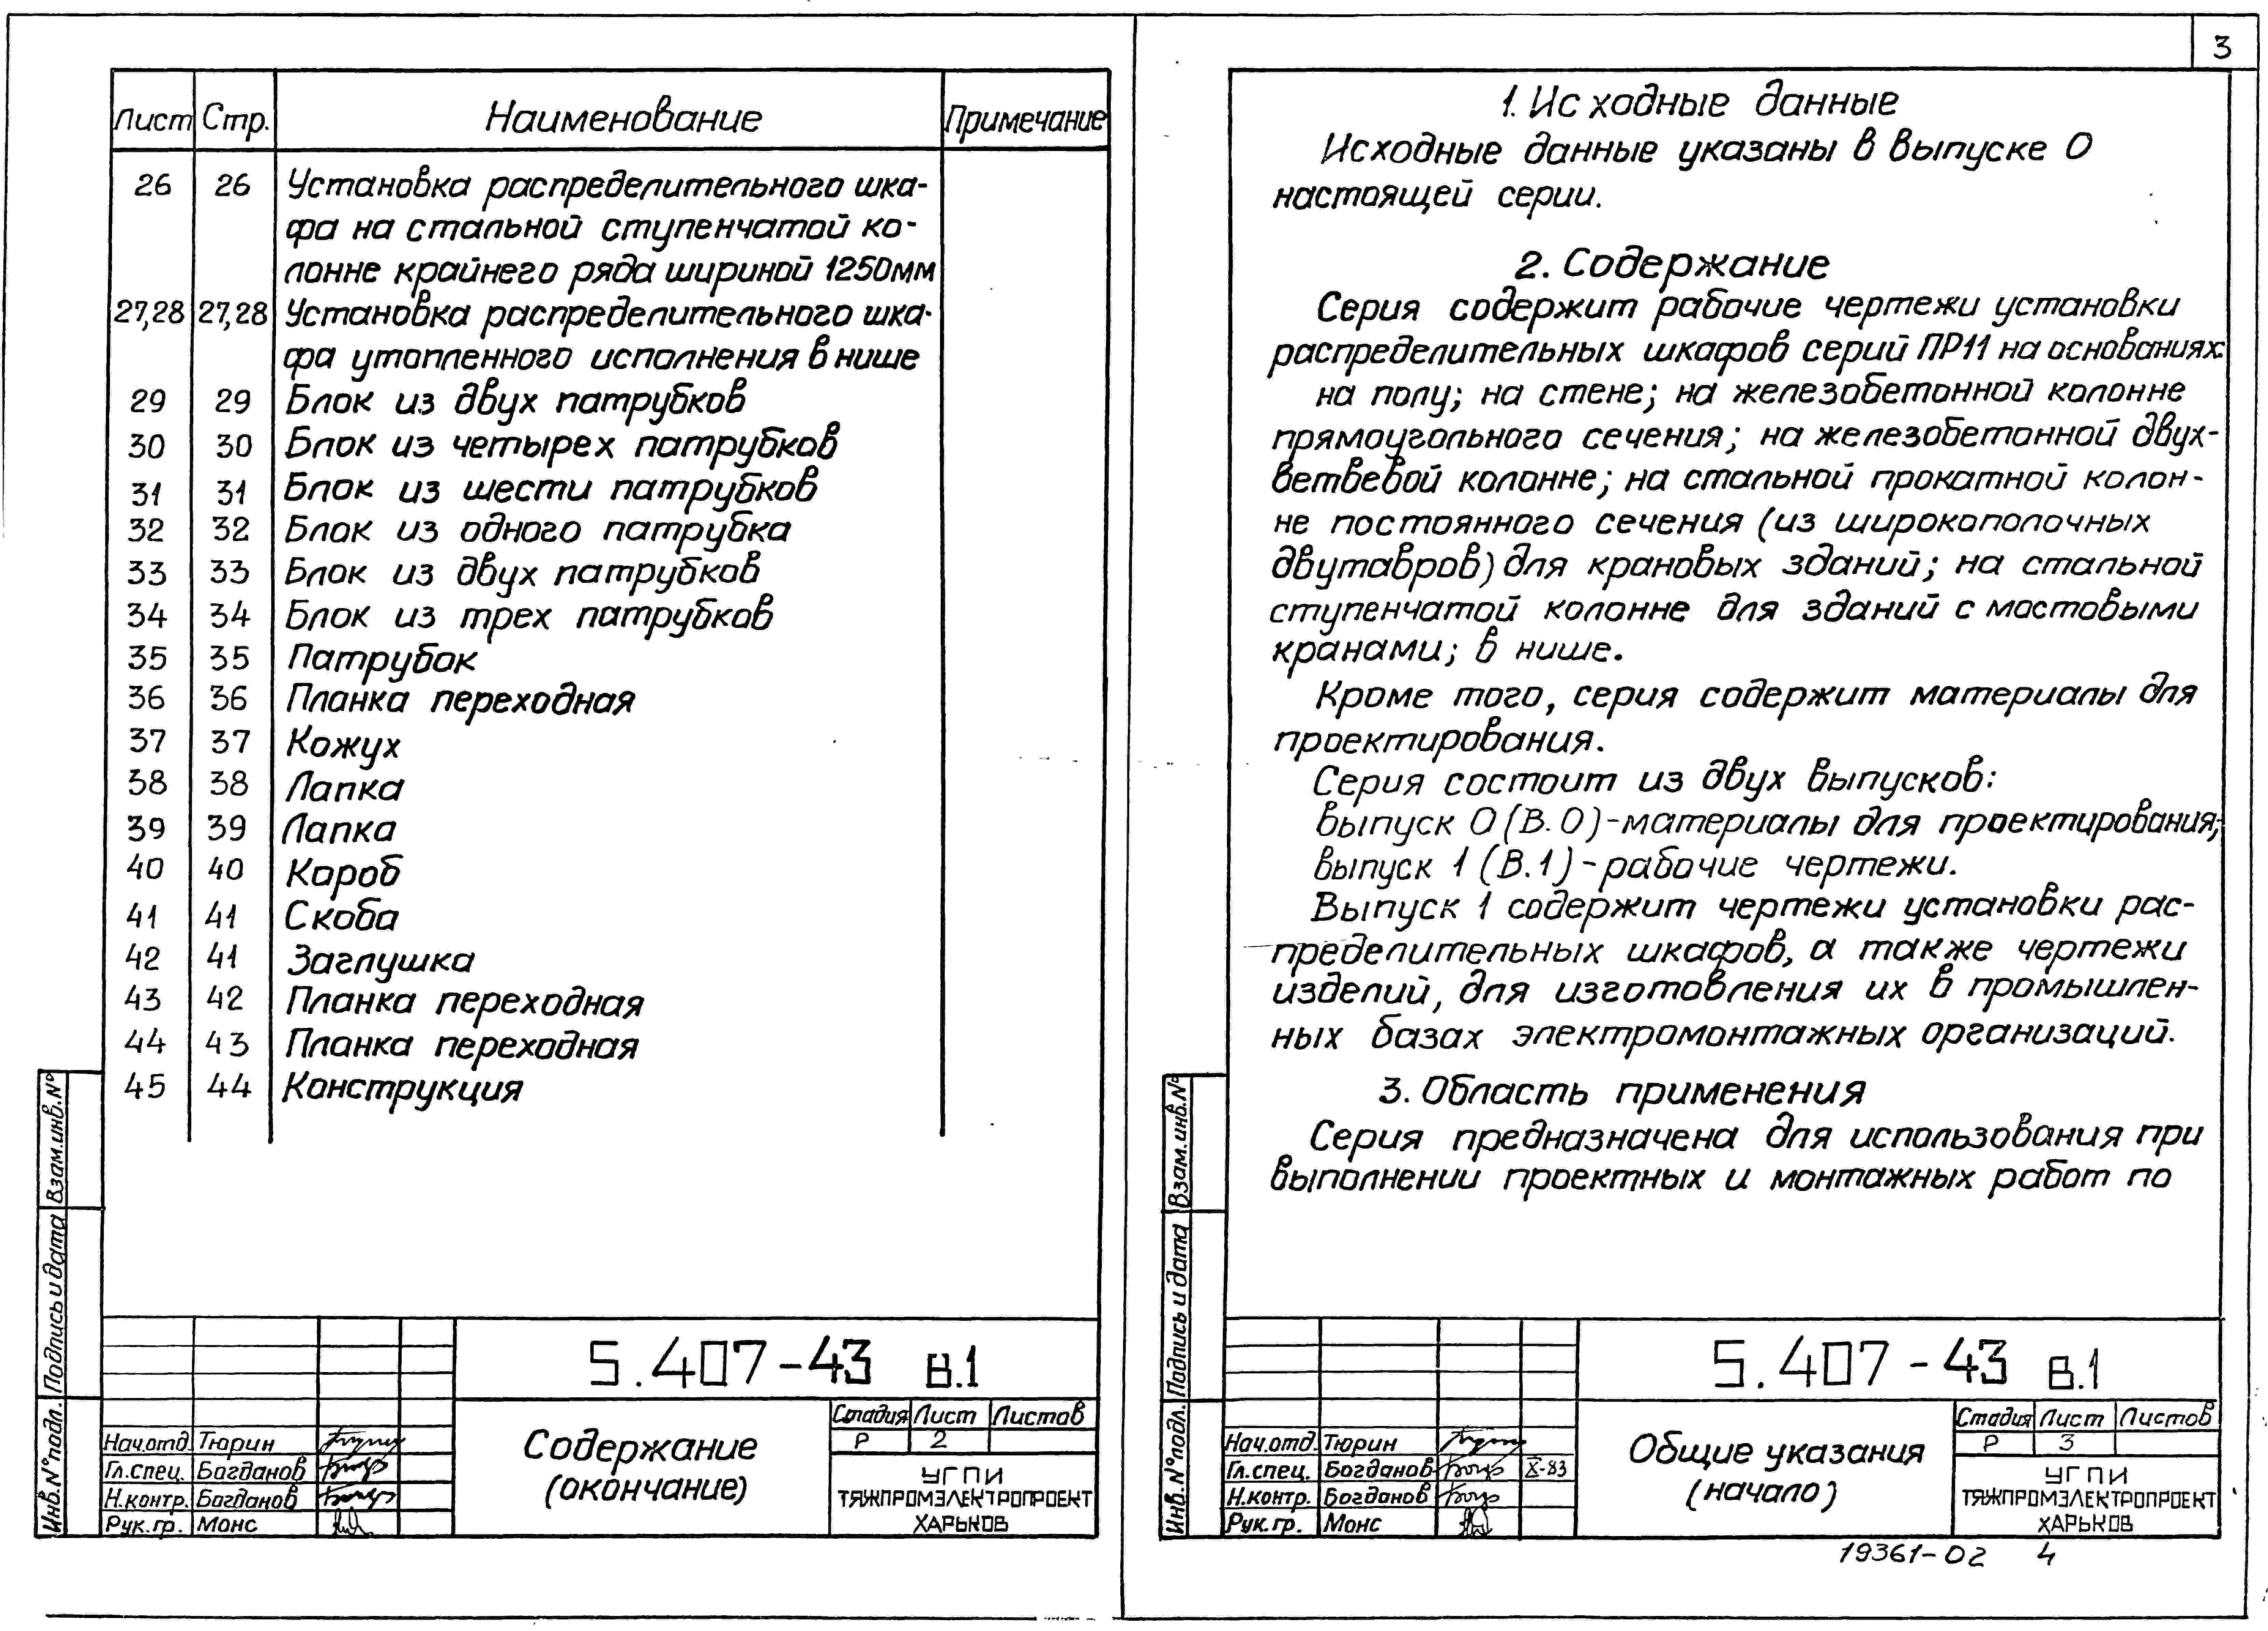 Лист Стр. Наименование Примечание
26 26 Установка распределительного шка-
фа на стальной ступенчатой ко-
лонне крайнего ряда шириной 1250мм
27,28 27,28 Установка распределительного шка-
фа утопленного исполнения в нише
29 29 Блок из двух патрубков
30 30 Блок из четырех патрубков
31 31 Блок из шести патрубков
32 32 Блок из одного патрубка
33 33 Блок из двух патрубков
34 34 Блок из трех патрубков
35 35 Патрубок
36 36 Планка переходная
37 37 Кожух
38 38 Лапка
39 39 Лапка
40 40 Короб
41 41 Скоба
42 41 Заглушка
43 42 Планка переходная
44 43 Планка переходная
45 44 Конструкция
Взам.инв.№
Подпись и дата
Инв.№подл.
5.407-43 В.1
Содержание
(окончание)
Стадия Лист Листов
Р 2
Нач.отд. Тюрин
Гл.спец. Богданов
Н.контр. Богданов
Рук.гр. Монс
УГПИ
ТЯЖПРОМЭЛЕКТРОПРОЕКТ
ХАРЬКОВ
3
1. Исходные данные
Исходные данные указаны в выпуске 0
настоящей серии.
2. Содержание
Серия содержит рабочие чертежи установки
распределительных шкафов серий ПР11 на основаниях:
на полу; на стене; на железобетонной колонне
прямоугольного сечения; на железобетонной двух-
ветвевой колонне; на стальной прокатной колон-
не постоянного сечения (из широкополочных
двутавров) для крановых зданий; на стальной
ступенчатой колонне для зданий с мостовыми
кранами; в нише.
Кроме того, серия содержит материалы для
проектирования.
Серия состоит из двух выпусков:
выпуск 0 (В.0)-материалы для проектирования;
выпуск 1 (В.1)-рабочие чертежи.
Выпуск 1 содержит чертежи установки рас-
пределительных шкафов, а также чертежи
изделий, для изготовления их в промышлен-
ных базах электромонтажных организаций.
3. Область применения
Серия предназначена для использования при
выполнении проектных и монтажных работ по
Взам.инв.№
Подпись и дата
Инв.№подл.
5.407-43 В.1
Общие указания
(начало)
Стадия Лист Листов
Р 3
Нач.отд. Тюрин
Гл.спец. Богданов X-83
Н.контр. Богданов
Рук.гр. Монс
УГПИ
ТЯЖПРОМЭЛЕКТРОПРОЕКТ
ХАРЬКОВ
19361-02 4